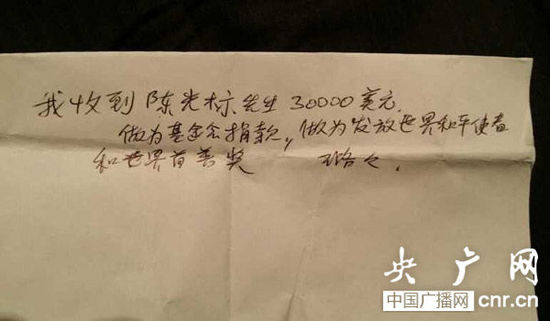 我收到陈光标先生30000美元.
做为基金会捐款,做为发放世界和平使者
和世界首善奖 璐之.
央广网
中国广播网 cnr.cn